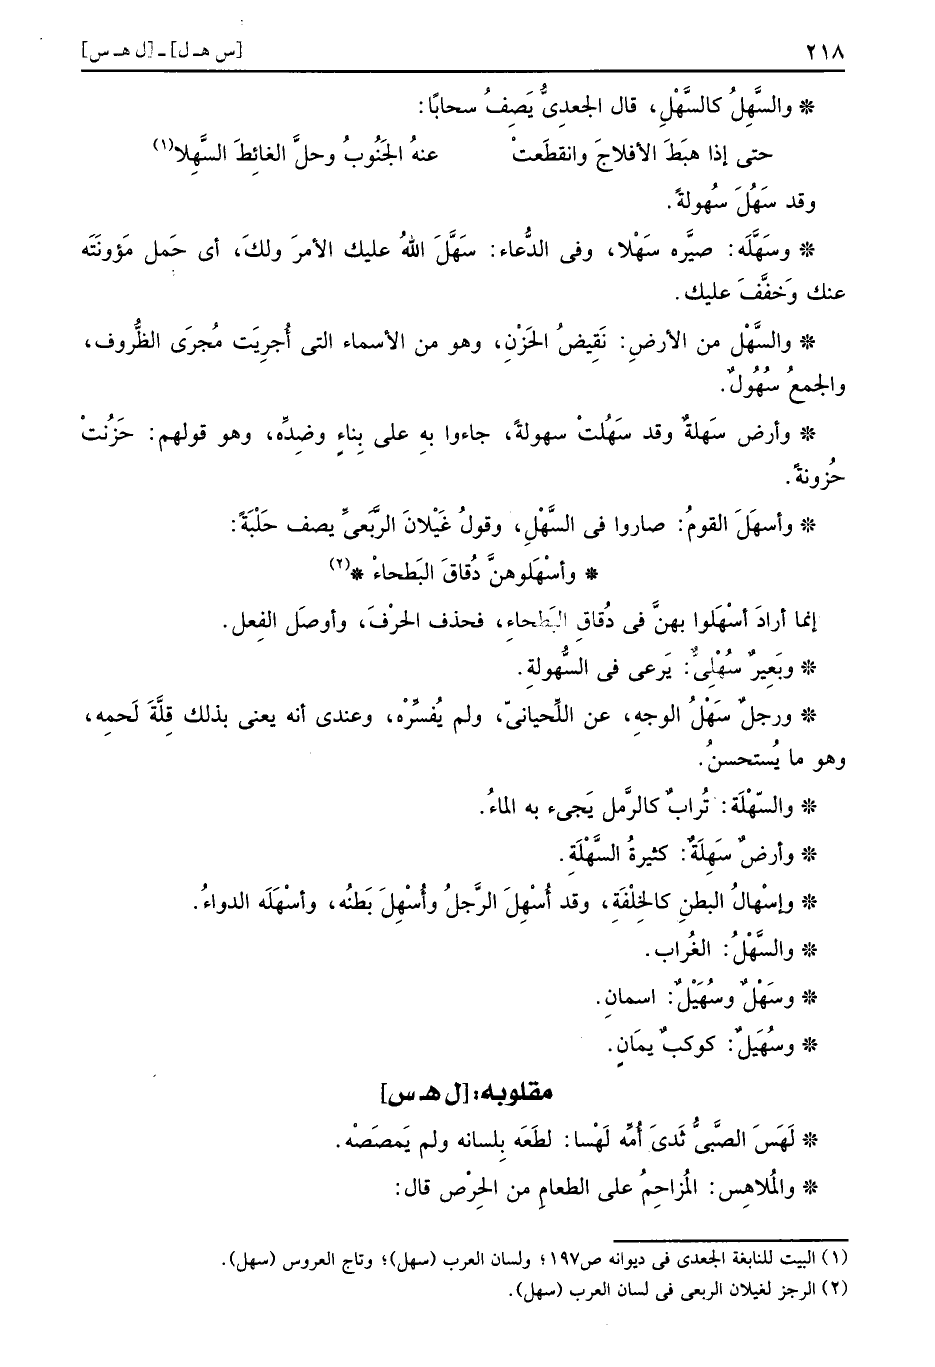 ٢١٨ [س هـ ل] ـ [ل هـ س]
* والسَّهِلُ كالسَّهْلِ، قال الجعدىُّ يَصِفُ سحابًا:
حتى إذا هبَطَ الأفلاجَ وانقطَعتْ عنهُ الجَنُوبُ وحلَّ الغائطَ السَّهِلا(١)
وقد سَهُلَ سُهولةً.
* وسَهَّلَه: صيَّره سَهْلا، وفى الدُّعاء: سَهَّلَ اللهُ عليك الأمرَ ولكَ، أى حَمل مؤونَتَه
عنك وَخفَّفَ عليك.
* والسَّهْل من الأرضِ: نَقِيضُ الحَزْنِ، وهو من الأسماء التى أُجرِيَت مُجرَى الظُّروف،
والجمعُ سُهُولٌ.
* وأرض سَهلةٌ وقد سَهُلتْ سهولةً، جاءوا به على بِناءِ وضِدِّه، وهو قولهم: حَزُنتْ
حُزونةً.
* وأسهَلَ القومُ: صاروا فى السَّهْلِ، وقولُ غَيْلانَ الرَّبَعىِّ يصف حَلْبَةً:
* وأسْهَلوهنَّ دُقاقَ البَطحاءْ *(٢)
إنما أرادَ أسْهَلوا بهنَّ فى دُقاقِ البَطحاءِ، فحذف الحرْفَ، وأوصَل الفِعل.
* وبَعِيرٌ سُهْلِىٌّ: يَرعى فى السُّهولةِ.
* ورجلٌ سَهْلُ الوجهِ، عن اللِّحيانىّ، ولم يُفسِّرْه، وعندى أنه يعنى بذلك قِلَّةَ لَحمِه،
وهو ما يُستحسنُ.
* والسّهْلَة: تُرابٌ كالرَّمل يَجىء به الماءُ.
* وأرضٌ سَهِلَةٌ: كثيرةُ السَّهْلَةِ.
* وإسْهالُ البطنِ كالخِلْفَةِ، وقد أُسْهِلَ الرَّجلُ وأُسْهِلَ بَطنُه، وأسْهَلَه الدواءُ.
* والسَّهْلُ: الغُراب.
* وسَهْلٌ وسُهَيْلٌ: اسمانِ.
* وسُهَيلٌ: كوكبٌ يمَانٍ.
مقلوبه: [ل هـ س]
* لَهَسَ الصَّبىُّ ثَدىَ أُمِّه لَهْسا: لطَعَه بِلسانه ولم يَمصَصْه.
* والمُلاهِس: المُزاحِمُ على الطعامِ من الحِرْص قال:
(١) البيت للنابغة الجعدى فى ديوانه ص١٩٧؛ ولسان العرب (سهل)؛ وتاج العروس (سهل).
(٢) الرجز لغيلان الربعى فى لسان العرب (سهل).